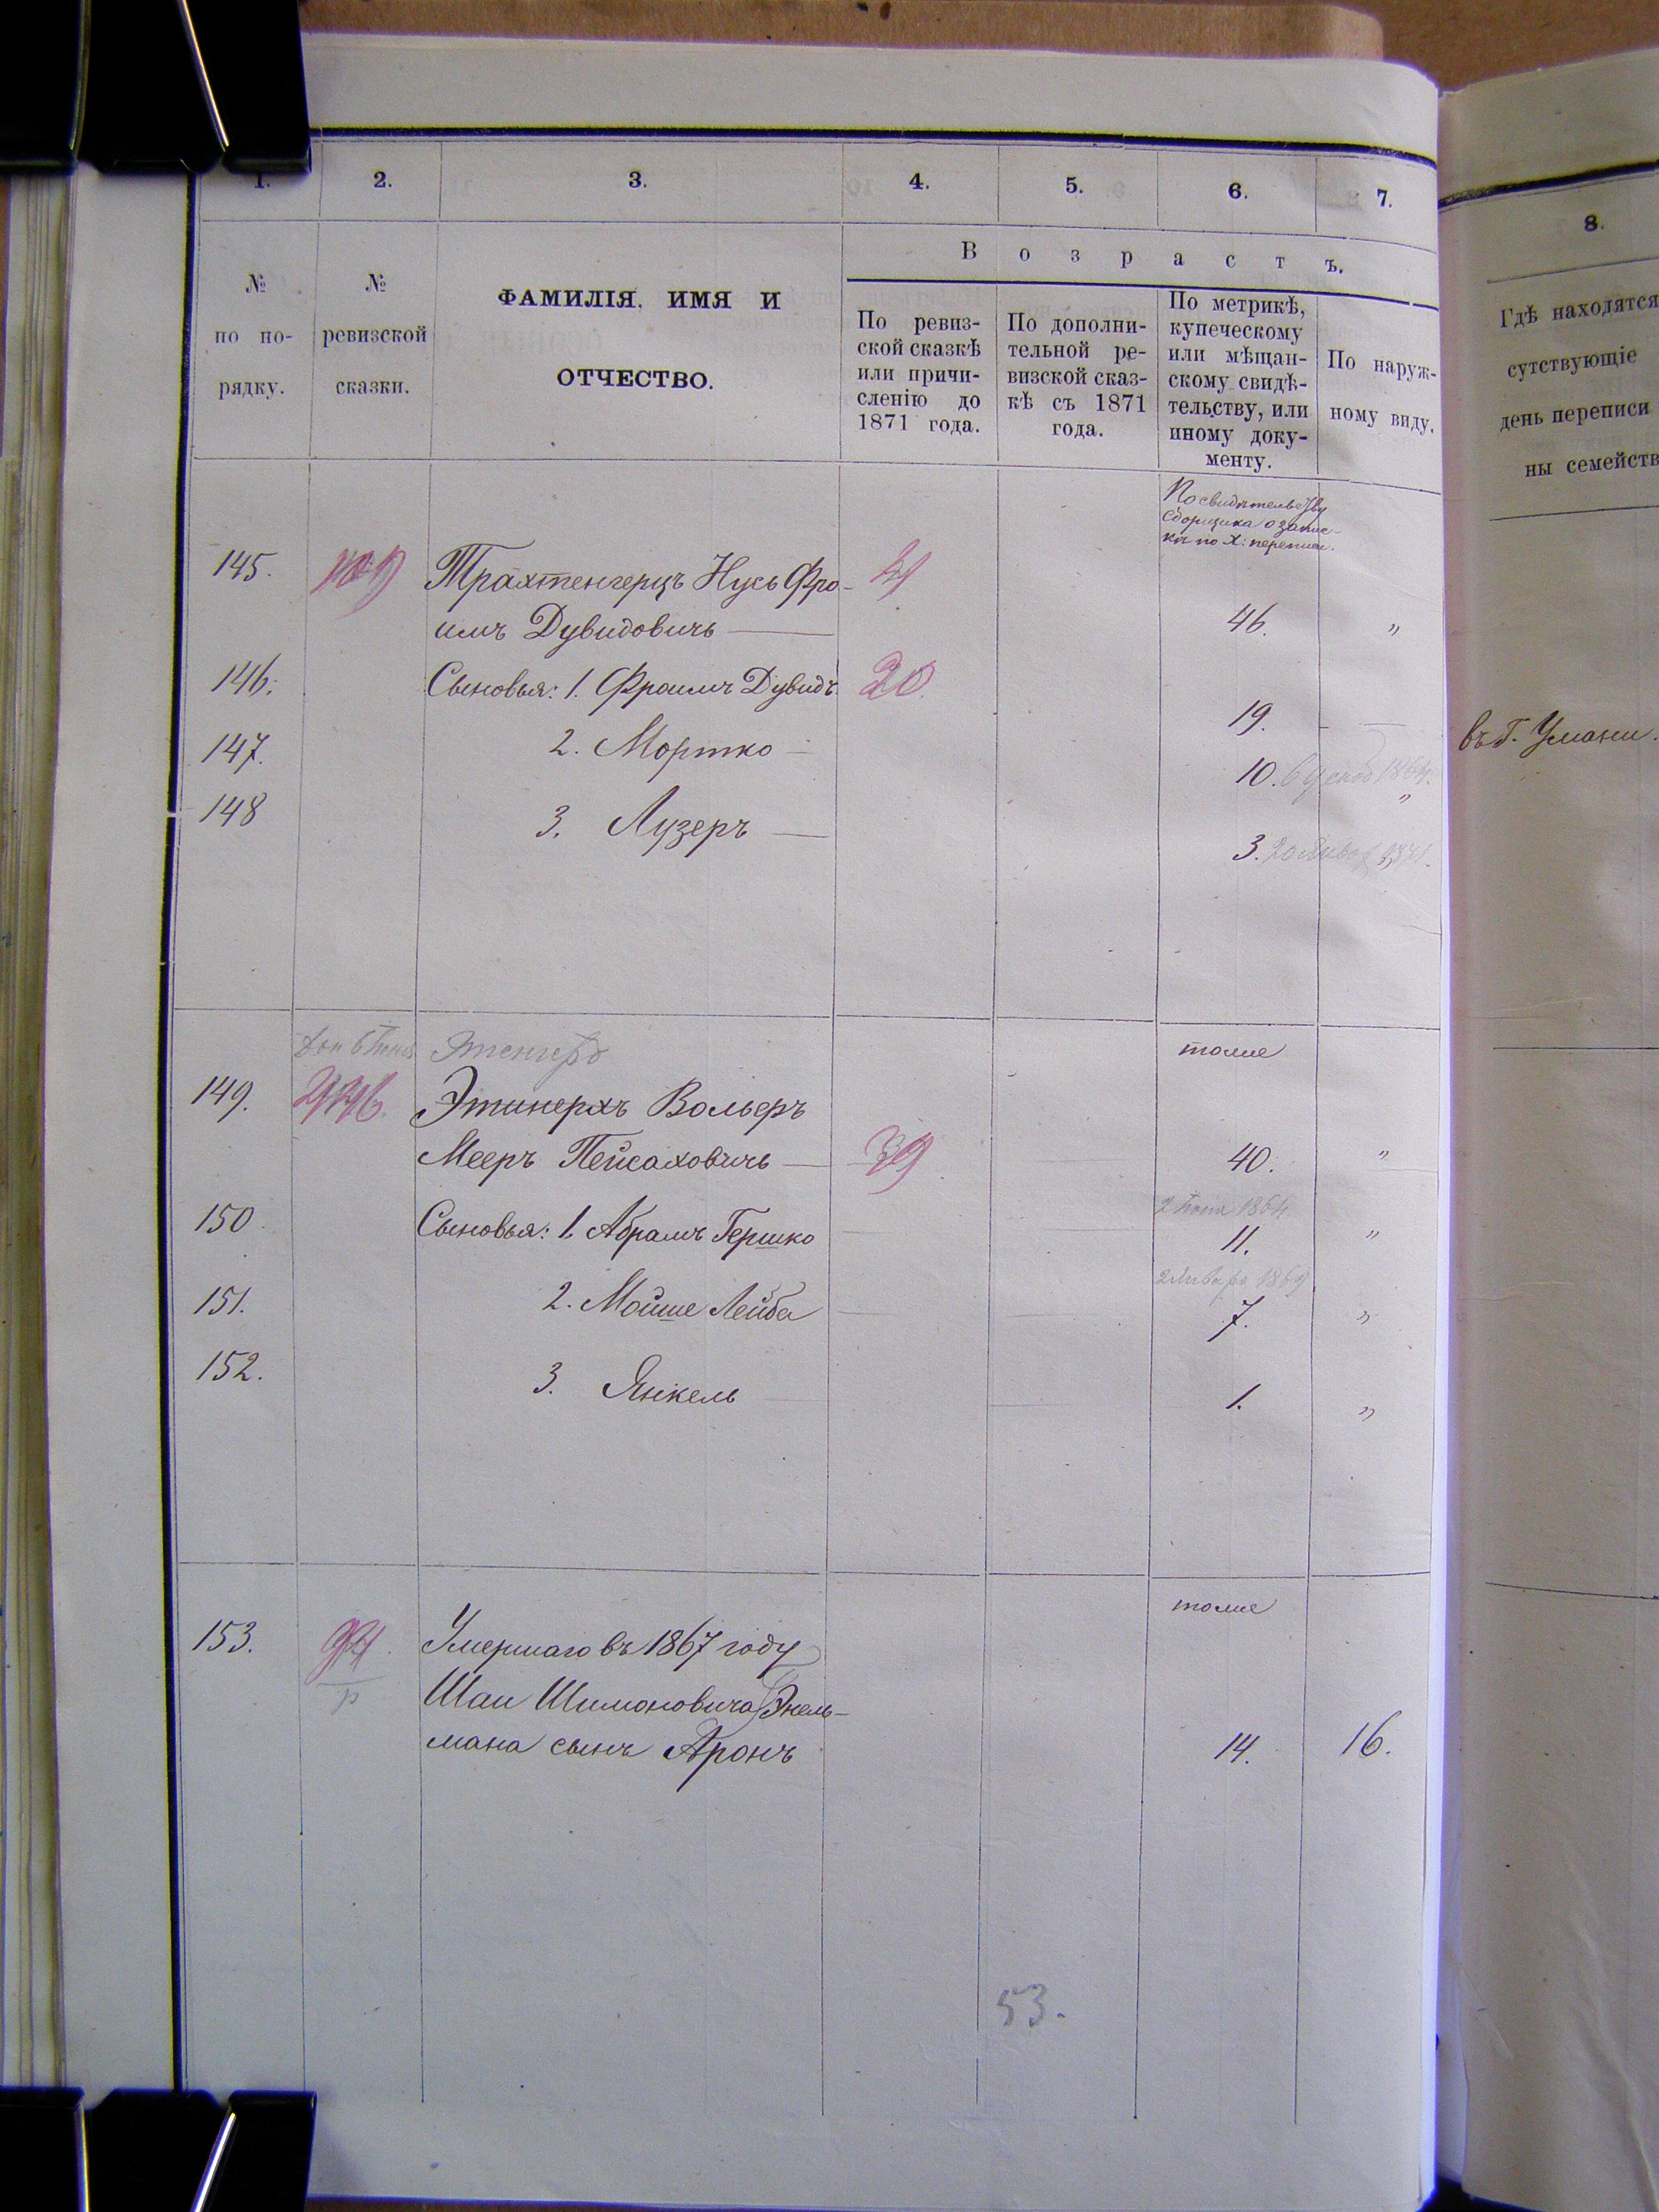 1. 2. 3. 4. 5. 6. 7.
8.
№
по по-
рядку.
№
ревизской
сказки.
ФАМИЛІЯ, ИМЯ И
ОТЧЕСТВО.
Возрастъ.
По ревиз-
ской сказкѣ
или причи-
сленію до
1871 года.
По дополни-
тельной ре-
визской сказ-
кѣ съ 1871
года.
По метрикѣ,
купеческому
или мѣщан-
скому свидѣ-
тельству, или
иному доку-
менту.
По наруж-
ному виду.
Гдѣ находятся
сутствующіе
день переписи
ны семейств
По свидѣтельству
Сборщика о запис-
кѣ по X: переписи.
145. Трахтенгерцъ Нусь Фро-
имъ Дувидовичъ — 46. "
146. Сыновья: 1. Фроимъ Дувидъ 20. 19. —
въ г. Умани.
147. 2. Мортко — 10. 1864. "
148 3. Лузеръ — 3. "
тоже
149. Этинерхъ Вольеръ
Мееръ Пейсаховичъ — 39 40. "
2 1864
150. Сыновья: 1. Абрамъ Гершко 11. "
2 Января 1869
151. 2. Мойше Лейба 7. "
152. 3. Янкель 1. "
тоже
153. Умершаго въ 1867 году
р Шаи Шимоновича Энель-
мана сынъ Аронъ 14. 16.
53.